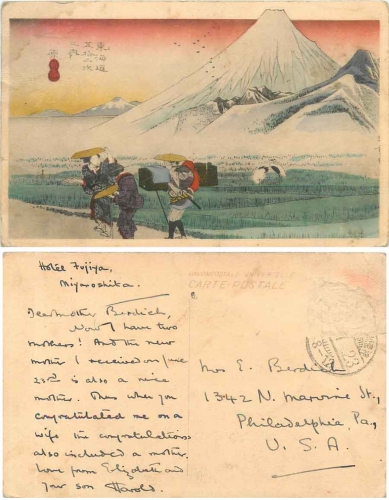 東海道
五拾三次
之内
原
Hotel Fujiya,
Miyanoshita.
UNION POSTALE UNIVERSELLE
CARTE POSTALE
Dear Mother Berdich,
Now I have two
mothers! And the new
mother I received on June
23rd is also a nice
mother. Thus when you
congratulated me on a
wife the congratulations
also included a mother.
Love from Elizabeth and
your son Harold.
Mrs E. Berdich
1342 N. Marvine St.,
Philadelphia, Pa.,
U. S. A.